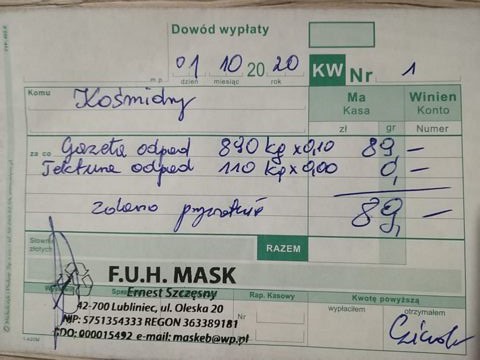 Dowód wypłaty
01 10 20 20
m p. dzień miesiąc rok
KW Nr 1
Komu Kośmidny
Ma Winien
Kasa Konto
zł gr Numer
za co Gazeta odpad 890 kg x 0,10 89,-
Tektura odpad 110 kg x 0,00 0,-
89,-
Słownie
złotych
RAZEM
F.U.H. MASK
Ernest Szczęsny
42-700 Lubliniec, ul. Oleska 20
NIP: 5751354333 REGON 363389181
BDO: 000015492 e-mail: maskeb@wp.pl
Rap. Kasowy
Nr
Kwotę powyższą
wypłaciłem otrzymałem